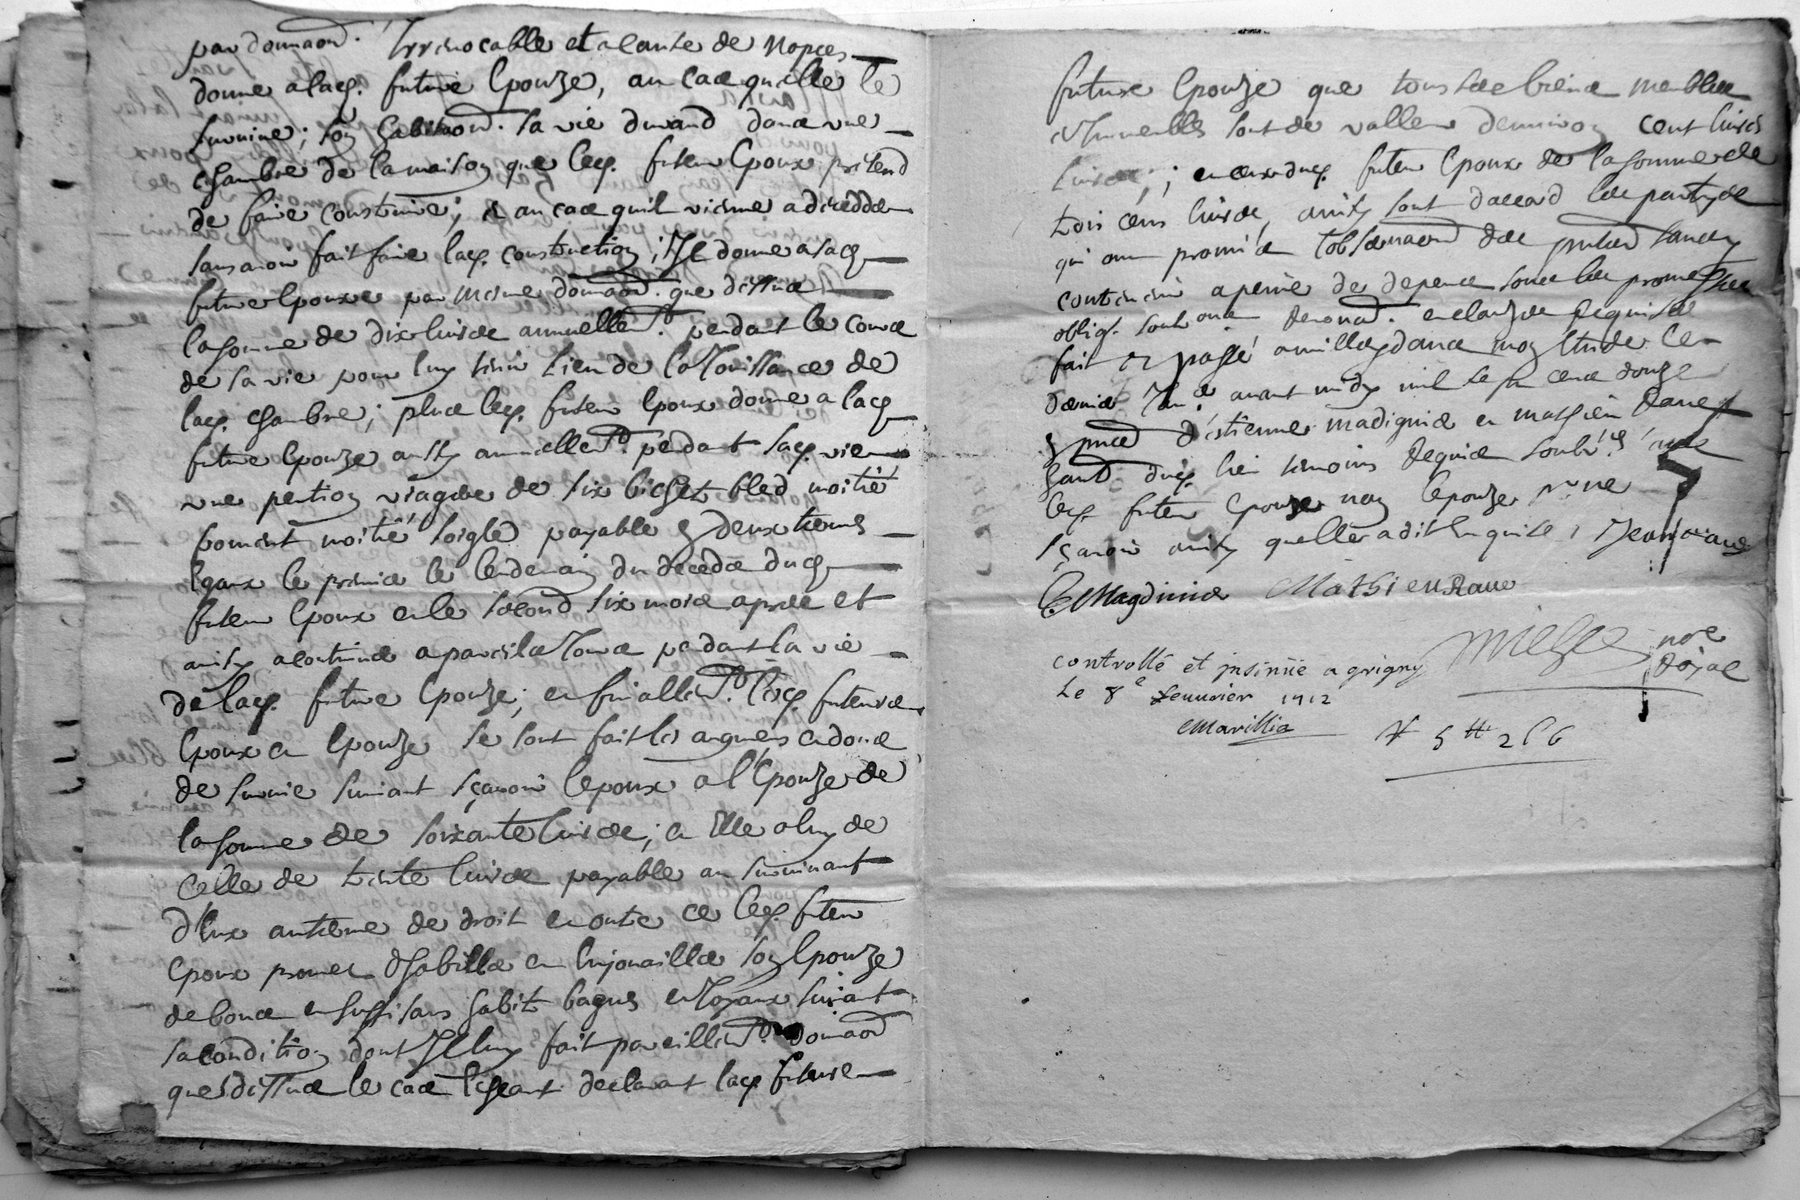 par donnaõn. Irrevocable et a cause de Nopces
donne a lad. future Epouze, au cas qu'elle le
survive; son habitaõn. sa vie durand dans une
chambre de la maison que led. futeur Epoux prétend
de faire construire; et au cas quil vienne a decedder
sans avoir fait faire lad. construction; Il donne a lad.
future Epouze par mesme donnaõn. que dessus
la somme de dix livres annuellem.t pendant le cours
de sa vie pour luy tenir Lieu de la Jouissance de
lad. chambre; plus led. futeur Epoux donne a lad.
future Epouze aussy annuellem.t pendant sad. vie
une pention viagere de six bichet bled moitié
froment moitié soigle payable en deux termes
Egaux le premier le lendemain du deceds dud.
futeur Epoux et le second six mois apres et
ainsy a continuer a pareils Jours pendant la vie
de lad. future Epouze; en finallem.t lesd. futeurs
Epoux et Epouze se sont fait les augmens et dons
de survie suivant sçavoir lepoux a l'Epouze de
la somme de soixante livres; et Elle a luy de
celle de trente livres payable au survivant
d'Eux autiere de droit en outre ce led. futeur
Epoux promet d'habiller et Enjouailler son Epouze
de bons et suffisans habits bagues et Joyaux suivant
sa condition dont Il luy fait pareillem.t donnaõn
que dessus le cas Echeant declarant lad. future
future Epouze que tous ses biens meubles
et Immeubles sont de valleur denviron cent livres
livres; et ceux dud. futeur Epoux de la somme de
trois cens livres, ainsy sont daccord les partyes
qui ont promis lobservaõn des pntes sans y
contrevenir a peine de depens sous les promesses
oblig. soub.ons Renonc. et clauzes Requises
fait et passé a millery dans mon Etude le
dernier Janv.er avant midy mil sept cens douze
en pnces d'estienne madignier et mathieu Rave
dud. lieu temoins Requis soub.nés avec
led. futeur Epouze non lepouze p.r ne
sçavoir ainsy quelle a dit Enquise; Jean rave
E Magdinier Mathieu Rave
controllé et insinüé a grigny
Le 8e feuvrier 1712
Marillia
nore
Royal
# 5 tt 2 s 6